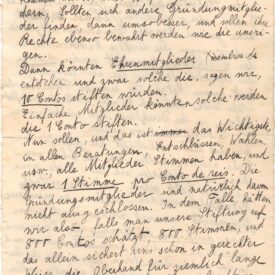 dern. Sollten sich andere Gründungmitglie-
der finden dann umso besser, und sollen ihre
Rechte ebenso bewahrt werden wie die unsri-
gen.
Dann könnten Ehrenmitglieder
entstehen und zwar solche die, sagen wir,
10 Contos stiften würden.
Einfache Mitglieder könnten solche werden
die 1 Conto stiften.
Nun sollen, und das ist das Wichtigste,
in allen Beratungen, Entschlüssen, Wahlen
usw. alle Mitglieder Stimmen haben, und
zwar 1 Stimme pro Conto de reis. Die
Gründungsmitglieder sind natürlich davon
nicht ausgeschlossen. In dem Falle, hätten
wir also, falls man unsere Stiftung auf
800 Contos schätzt 800 Stimmen, und
das allein sichert uns schon in gerechter
Weise die Oberhand für ziemlich lange